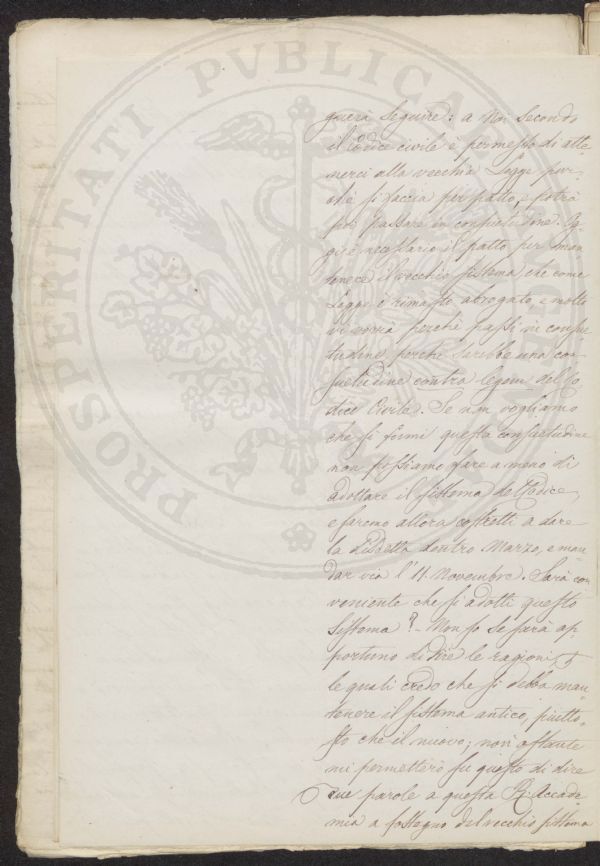 PROSPERITATI PVBLICAE
guerà seguire: a Noi secondo
il Codice civile è permesso di atte
nerci alla vecchia Legge pur-
chè si faccia per patto, e potrà
poi passare in consuetudine. Og
gi è necessario il patto per man
tenere il vecchio sistema che come
Legge è rimasto abrogato, e molto
vi vorrà perchè passi in consue
tudine, perchè sarebbe una con
suetudine contra legem del Co
dice Civile. Se non vogliamo
che si formi questa consuetudine
non possiamo fare a meno di
adottare il sistema del Codice,
e saremo allora costretti a dare
la disdetta dentro Marzo, e man
dar via l'11 Novembre. Sarà con
veniente che si adotti questo
Sistema? - Non so se sarà op
portuno di dire le ragioni
le quali credo che si debba man
tenere il sistema antico, piutto
sto che il nuovo; non ostante
mi permetterò su questo di dire
due parole a questa R. Accade
mia a sostegno del vecchio sistema